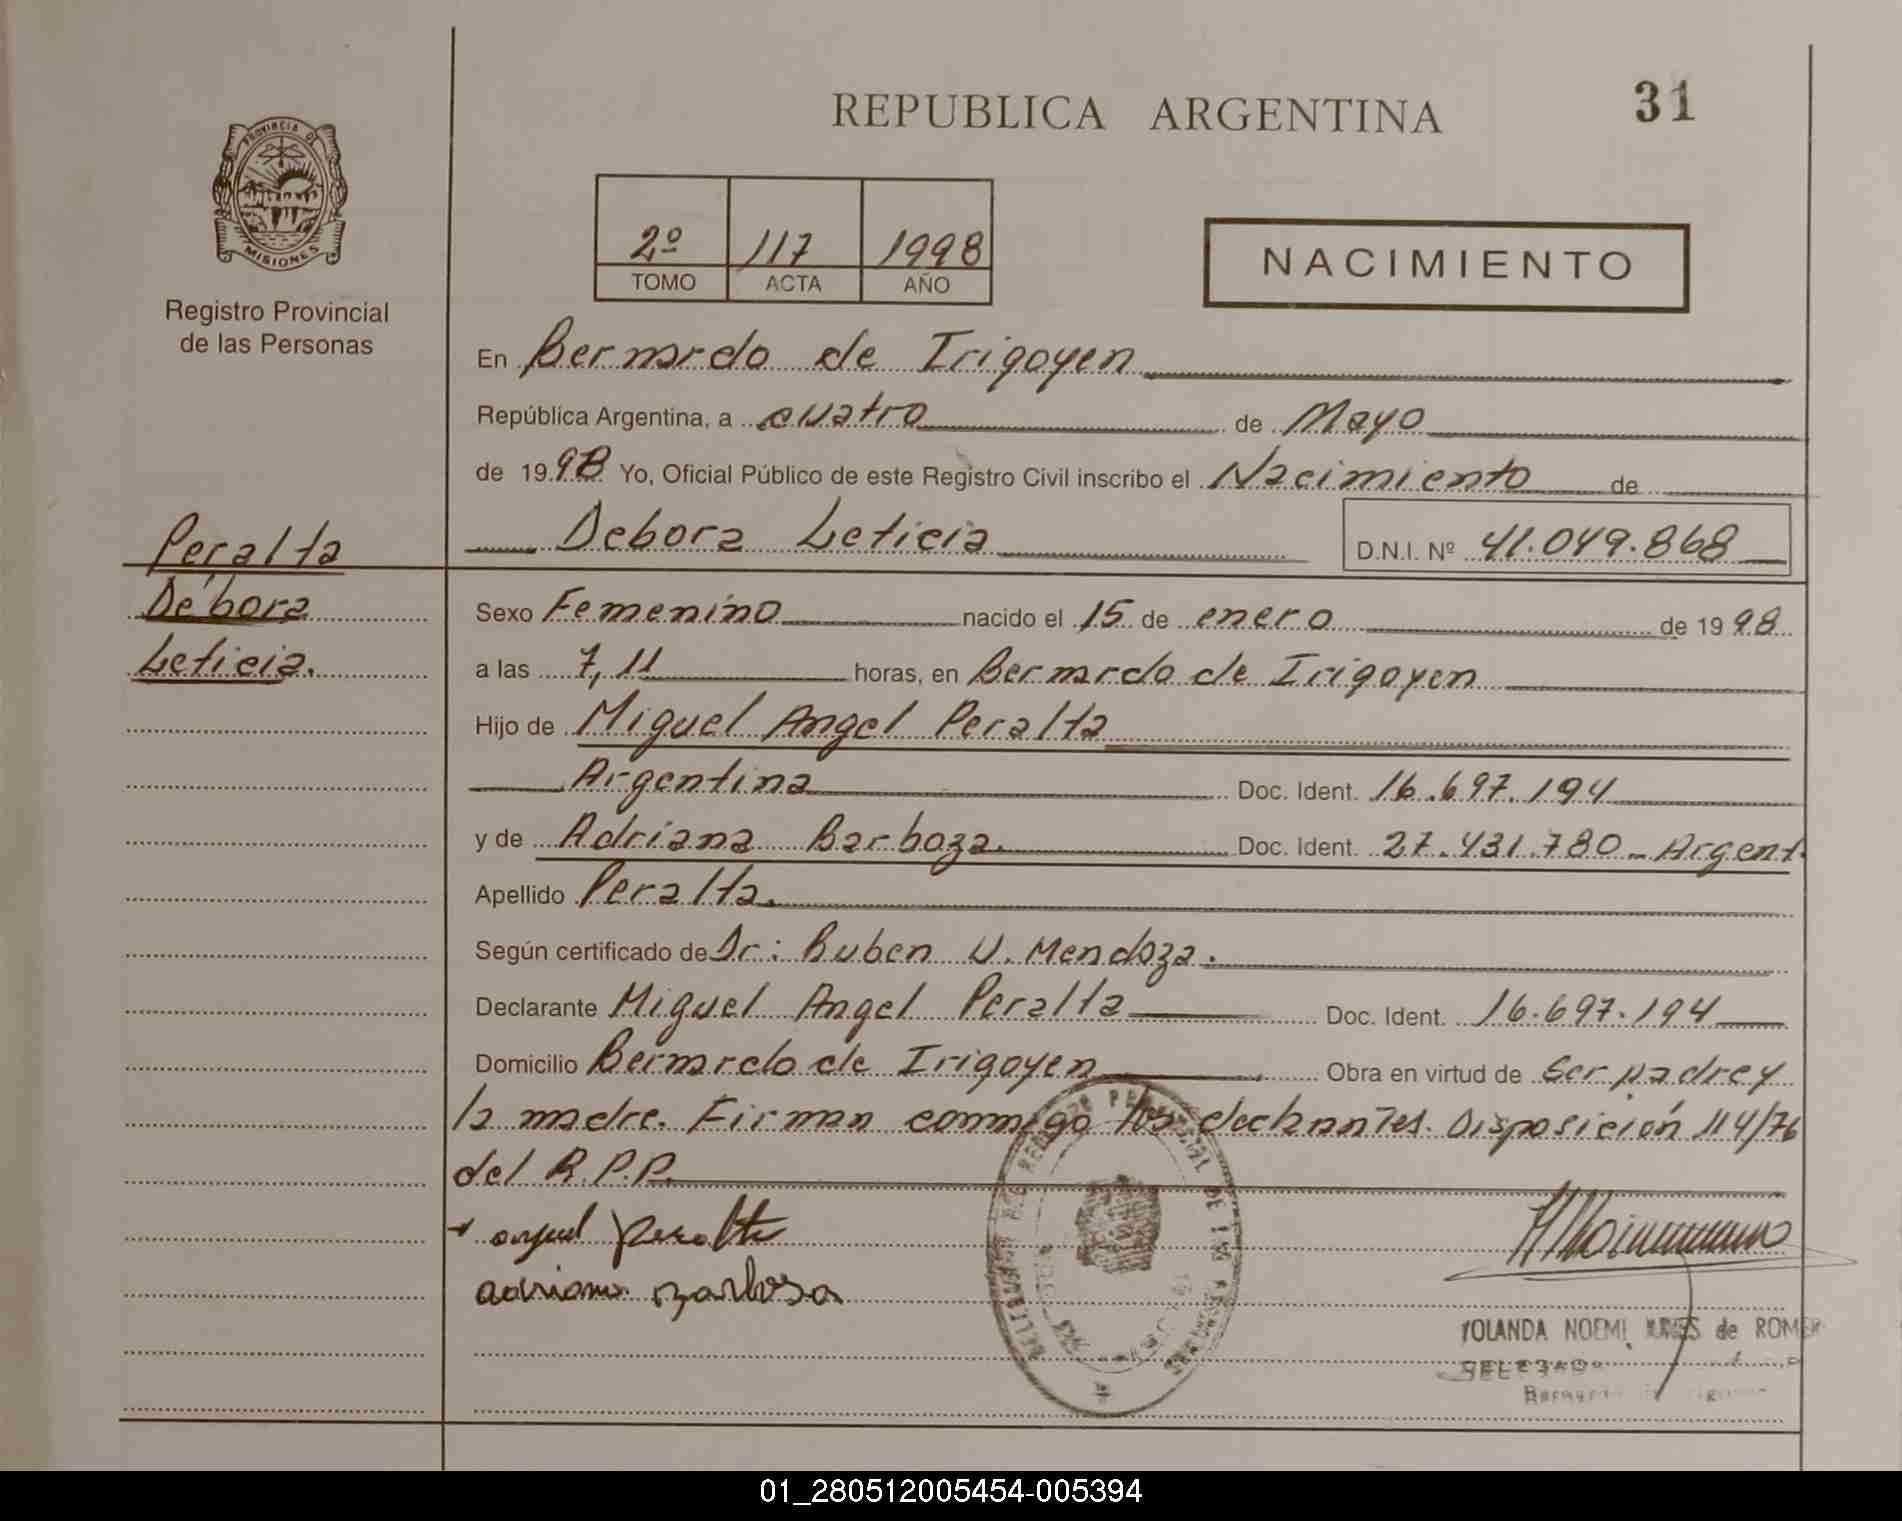 REPUBLICA ARGENTINA
31
PROVINCIA DE
MISIONES
Registro Provincial
de las Personas
2º 117 1998
TOMO ACTA AÑO
NACIMIENTO
En Bernardo de Irigoyen
República Argentina, a cuatro de Mayo
de 1998 Yo, Oficial Público de este Registro Civil inscribo el Nacimiento de
Debora Leticia D.N.I. Nº 41.049.868
Peralta
Débora
Leticia.
Sexo Femenino nacido el 15 de enero de 1998
a las 7,11 horas, en Bernardo de Irigoyen
Hijo de Miguel Angel Peralta
Argentina Doc. Ident. 16.697.194
y de Adriana Barboza. Doc. Ident. 27.431.780 - Argent.
Apellido Peralta.
Según certificado de Dr: Ruben U. Mendoza.
Declarante Miguel Angel Peralta Doc. Ident. 16.697.194
Domicilio Bernardo de Irigoyen Obra en virtud de ser padre y
la madre. Firman conmigo los declarantes. Disposición 114/76
del R.P.P.
angel peralta
adriana barbosa
YOLANDA NOEMI de ROMER
01_280512005454-005394